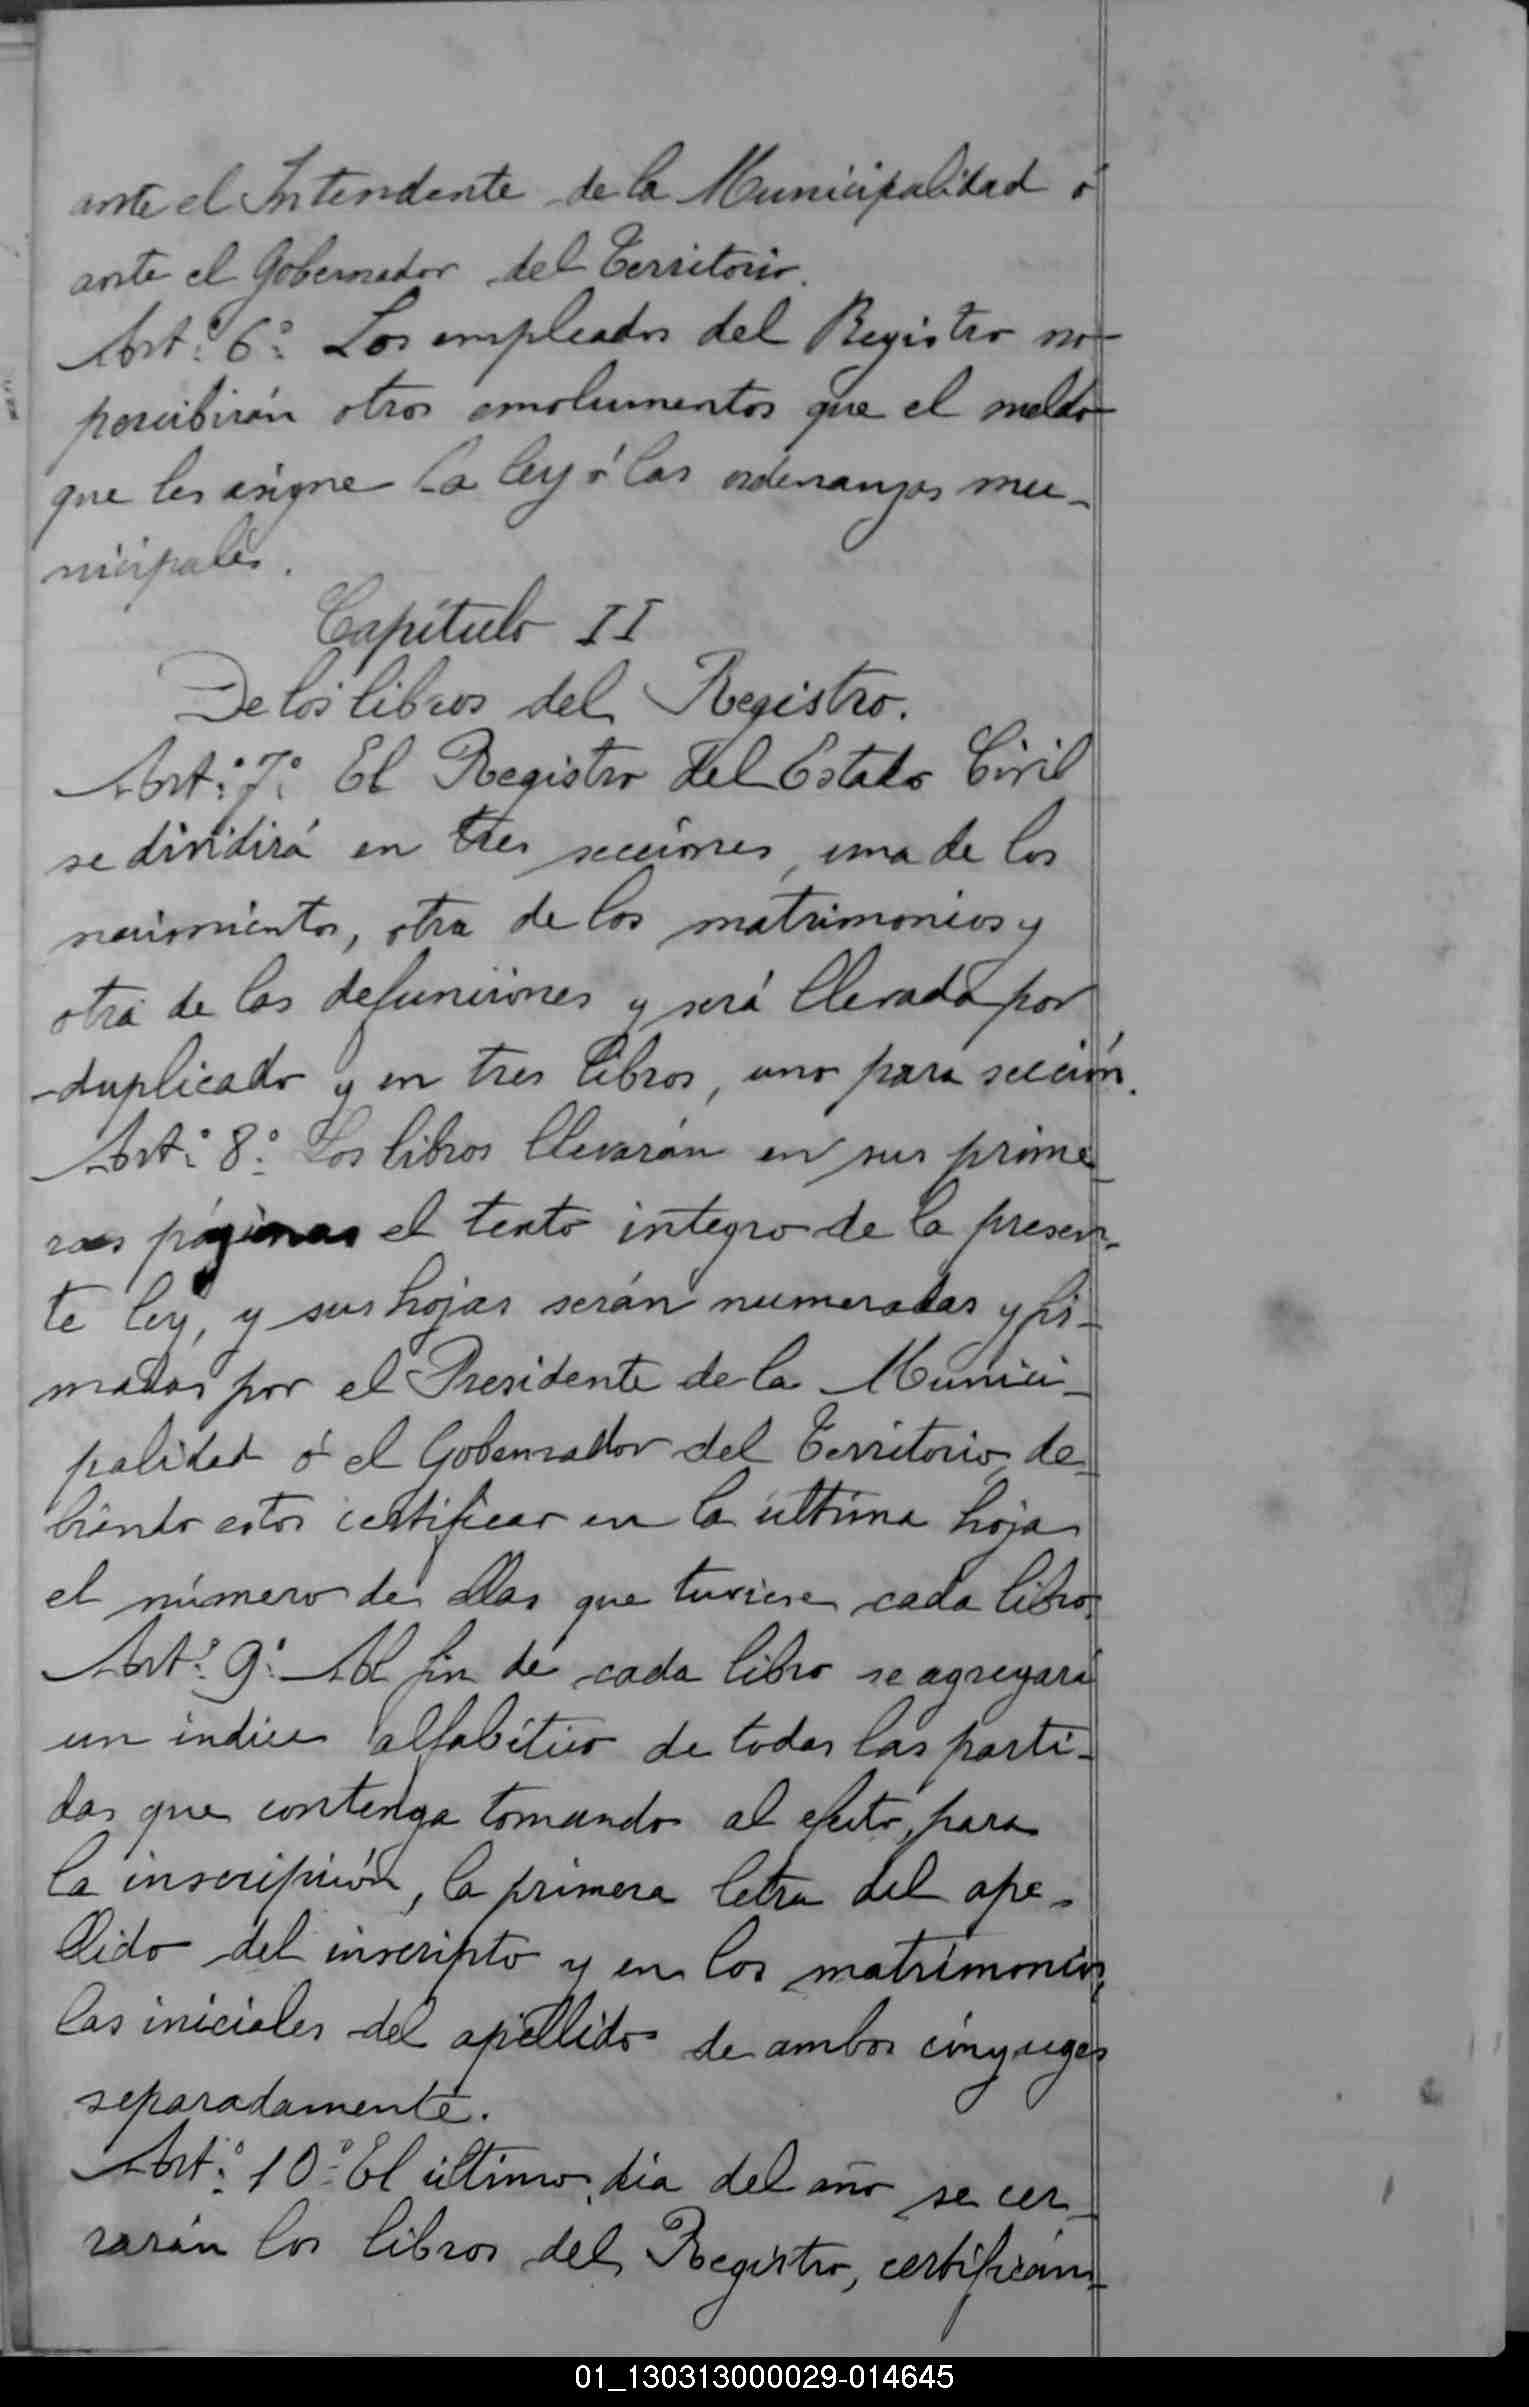 ante el Intendente de la Municipalidad ó
ante el Gobernador del Territorio.
Art.º 6º. Los empleados del Registro no
percibirán otros emolumentos que el sueldo
que les asigne la ley ó las ordenanzas mu-
nicipales.
Capítulo II
De los libros del Registro.
Art.º 7º. El Registro del Estado Civil
se dividirá en tres secciones, una de los
nacimientos, otra de los matrimonios y
otra de las defunciones y será llevada por
duplicado y en tres libros, uno para sección.
Art.º 8º. Los libros llevarán en sus prime-
ras páginas el texto integro de la presen-
te ley, y sus hojas serán numeradas y fir-
madas por el Presidente de la Munici-
palidad ó el Gobernador del Territorio, de-
biendo estos certificar en la última hoja
el número de ellas que tuviese cada libro.
Art.º 9º. Al fin de cada libro se agregará
un índice alfabético de todas las parti-
das que contenga tomando al efecto, para
la inscripción, la primera letra del ape-
llido del inscripto y en los matrimonios,
las iniciales del apellido de ambos cónyuges
separadamente.
Art.º 10º. El último dia del año se cer-
rarán los libros del Registro, certifican-
01_130313000029-014645